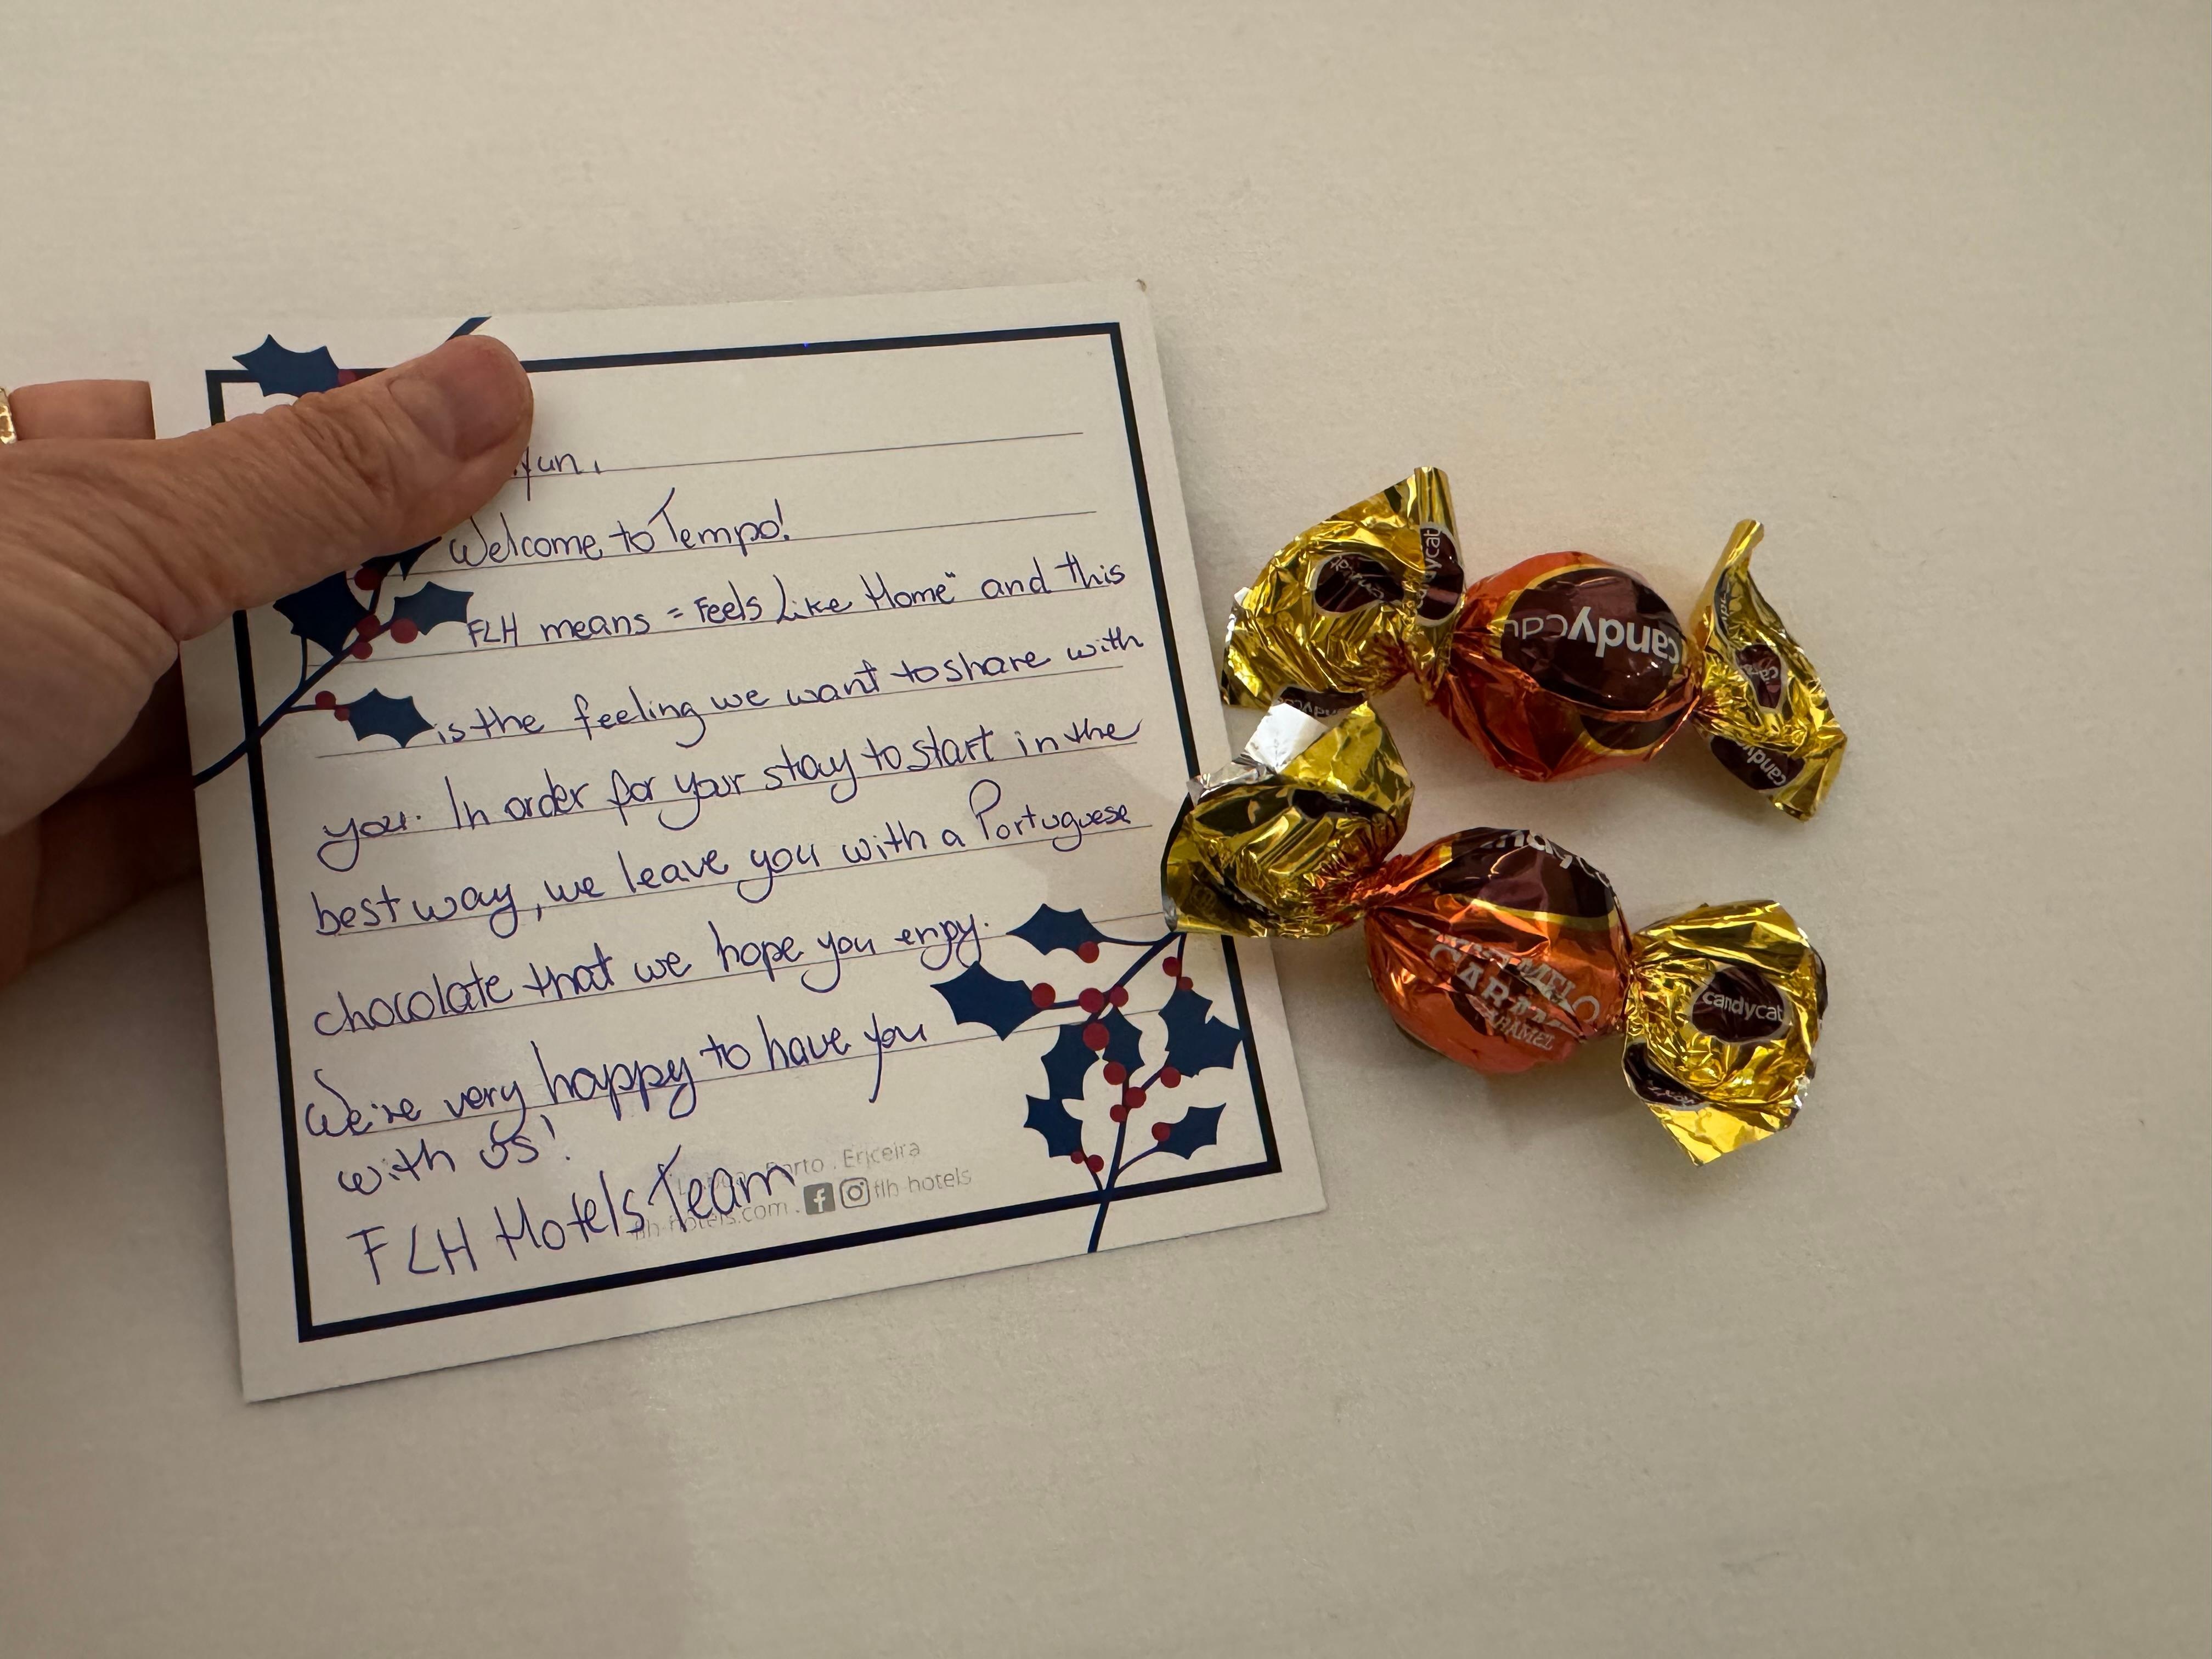 Welcome to Tempo!
FLH means "Feels Like Home" and this
is the feeling we want to share with
you. In order for your stay to start in the
best way, we leave you with a Portuguese
chocolate that we hope you enjoy.
We're very happy to have you
with us!
FLH Hotels Team
Ericeira
flh-hotels.com . flh hotels
candycat
candycat
candycat
CARAMELO
candycat